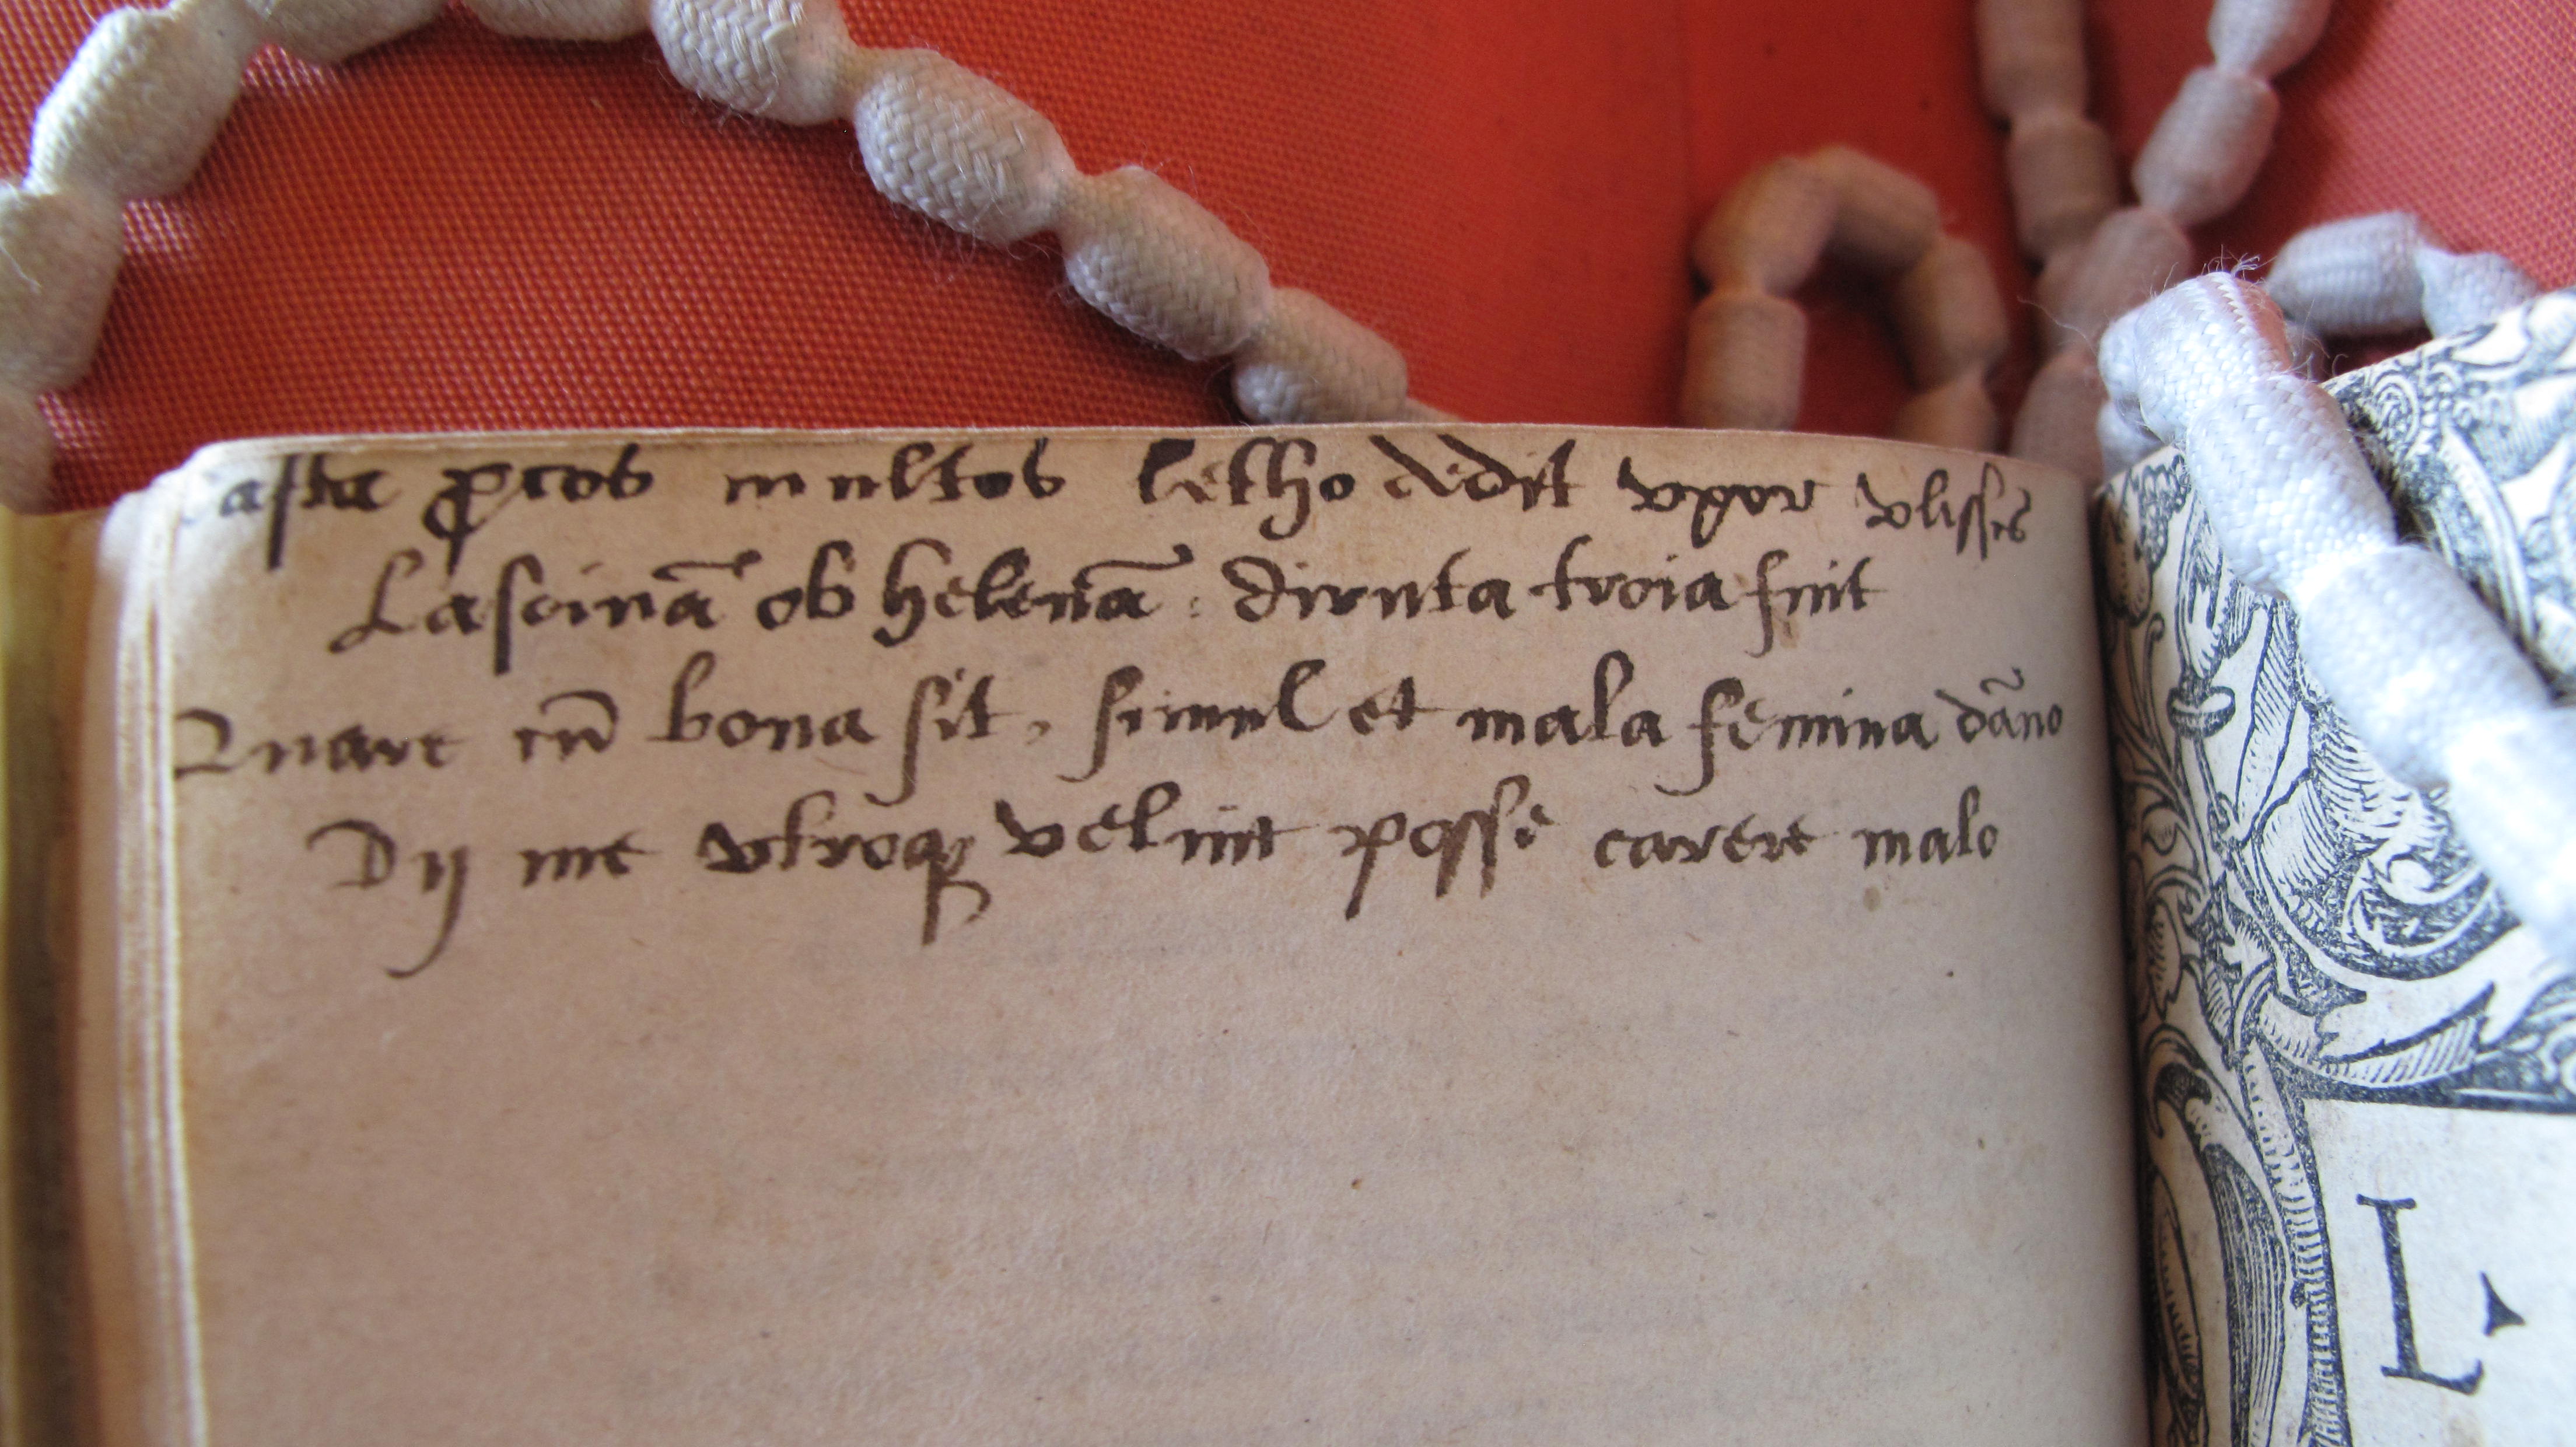 Casta ꝓcos multos letho dedit vxor vlissis
Lasciuā ob helenā. diruta troia fuit
Quare cū bona sit, simul et mala femina dāno
Dij me vtroqꝫ velint posse carere malo
L.